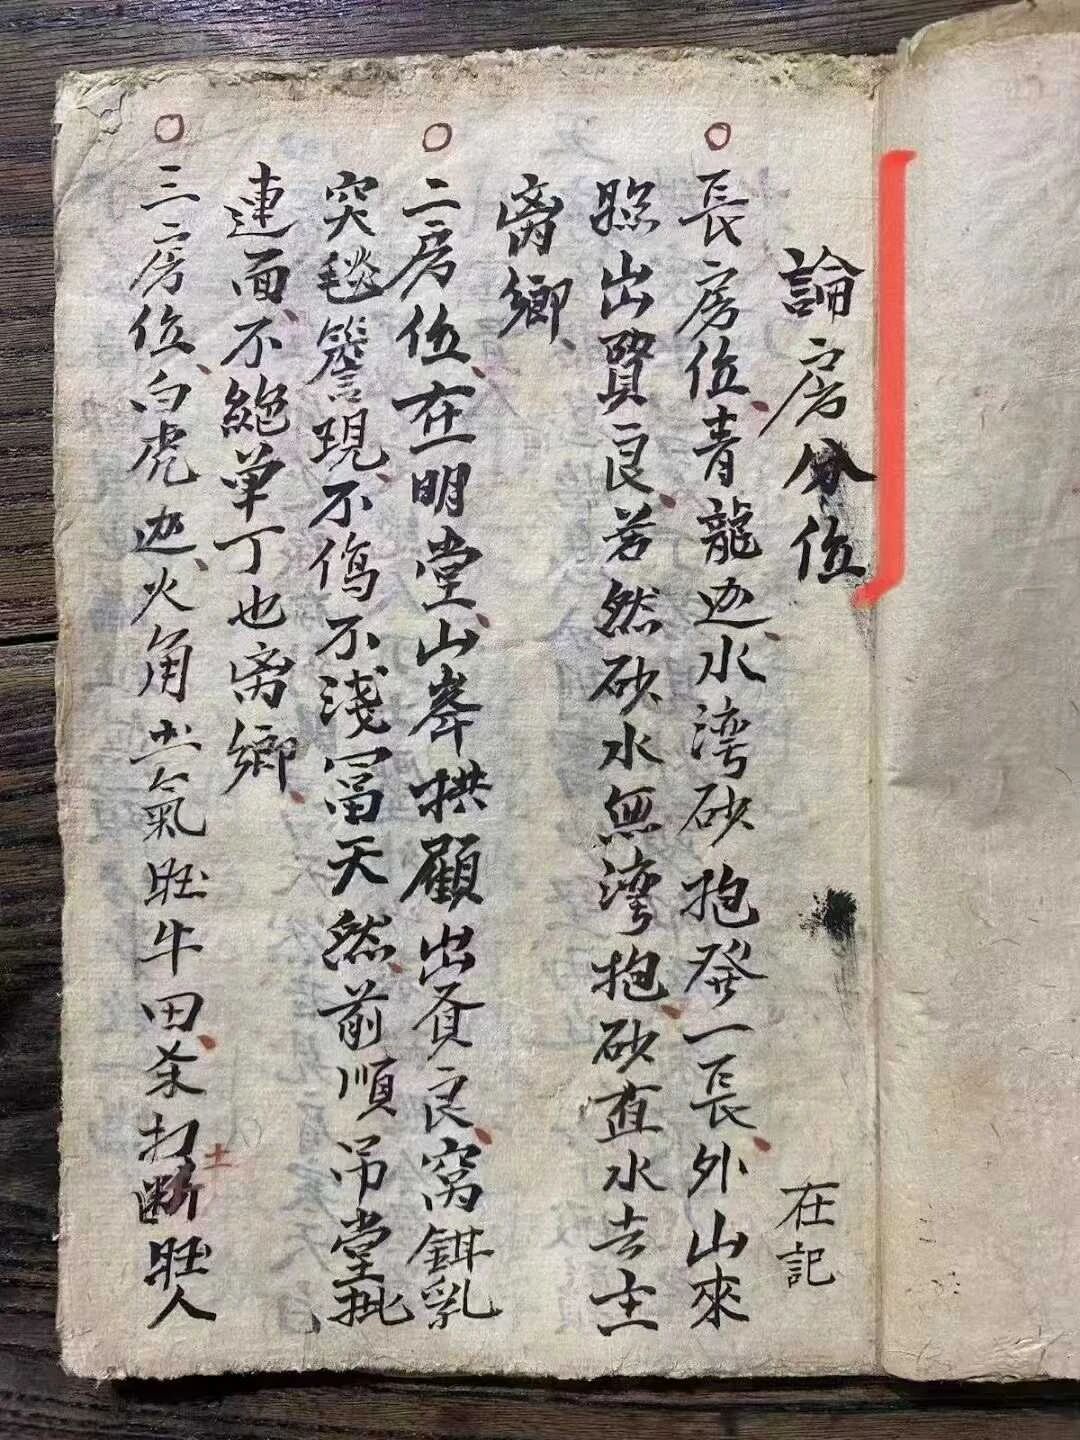 論房分位
在記
長房位青龍边水湾砂抱發一長外山來
照出賢良若然砂水無湾抱砂直水去主
离鄉
二房位在明堂山峯拱顧出賢良窩鉗乳
突毯簷現不傷不淺冨天然前順吊堂批
連面不絶单丁也离鄉
三房位白虎边火角土氣旺牛田杀打断旺人
土